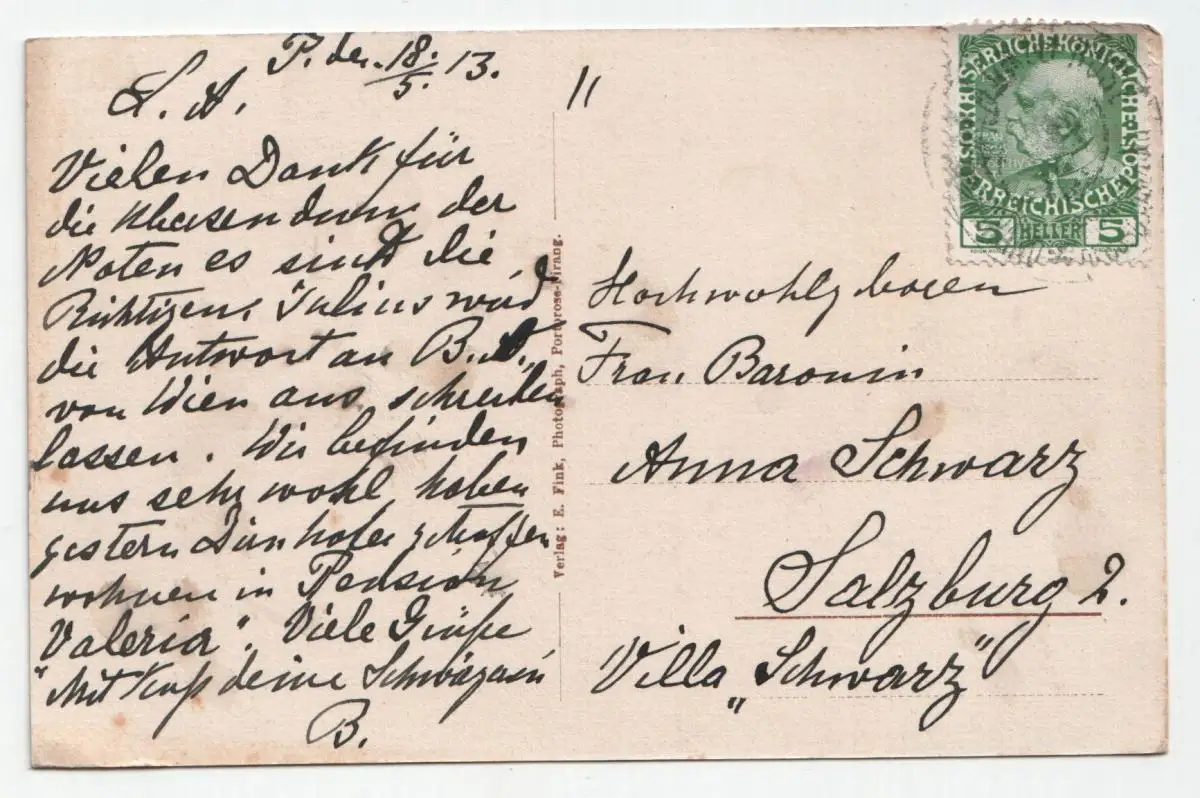 P. den 18./5. 13.
L. A.
Vielen Dank für
die Übersendung der
Noten es sind die
Richtigen, Julius wird
die Antwort an B. A.
von Wien aus schreiben
lassen. Wir befinden
uns sehr wohl, haben
gestern getroffen
wohnen in Pension
"Valeria". Viele Grüße
Mit Kuß deine Schwägerin
B.
11
Verlag: E. Fink, Photograph, Portorose-Pirano.
KAISERLICHE KÖNIGLICHE ÖSTERREICHISCHE POST
5 HELLER 5
Hochwohlgeboren
Frau Baronin
Anna Schwarz
Salzburg 2.
Villa „Schwarz"